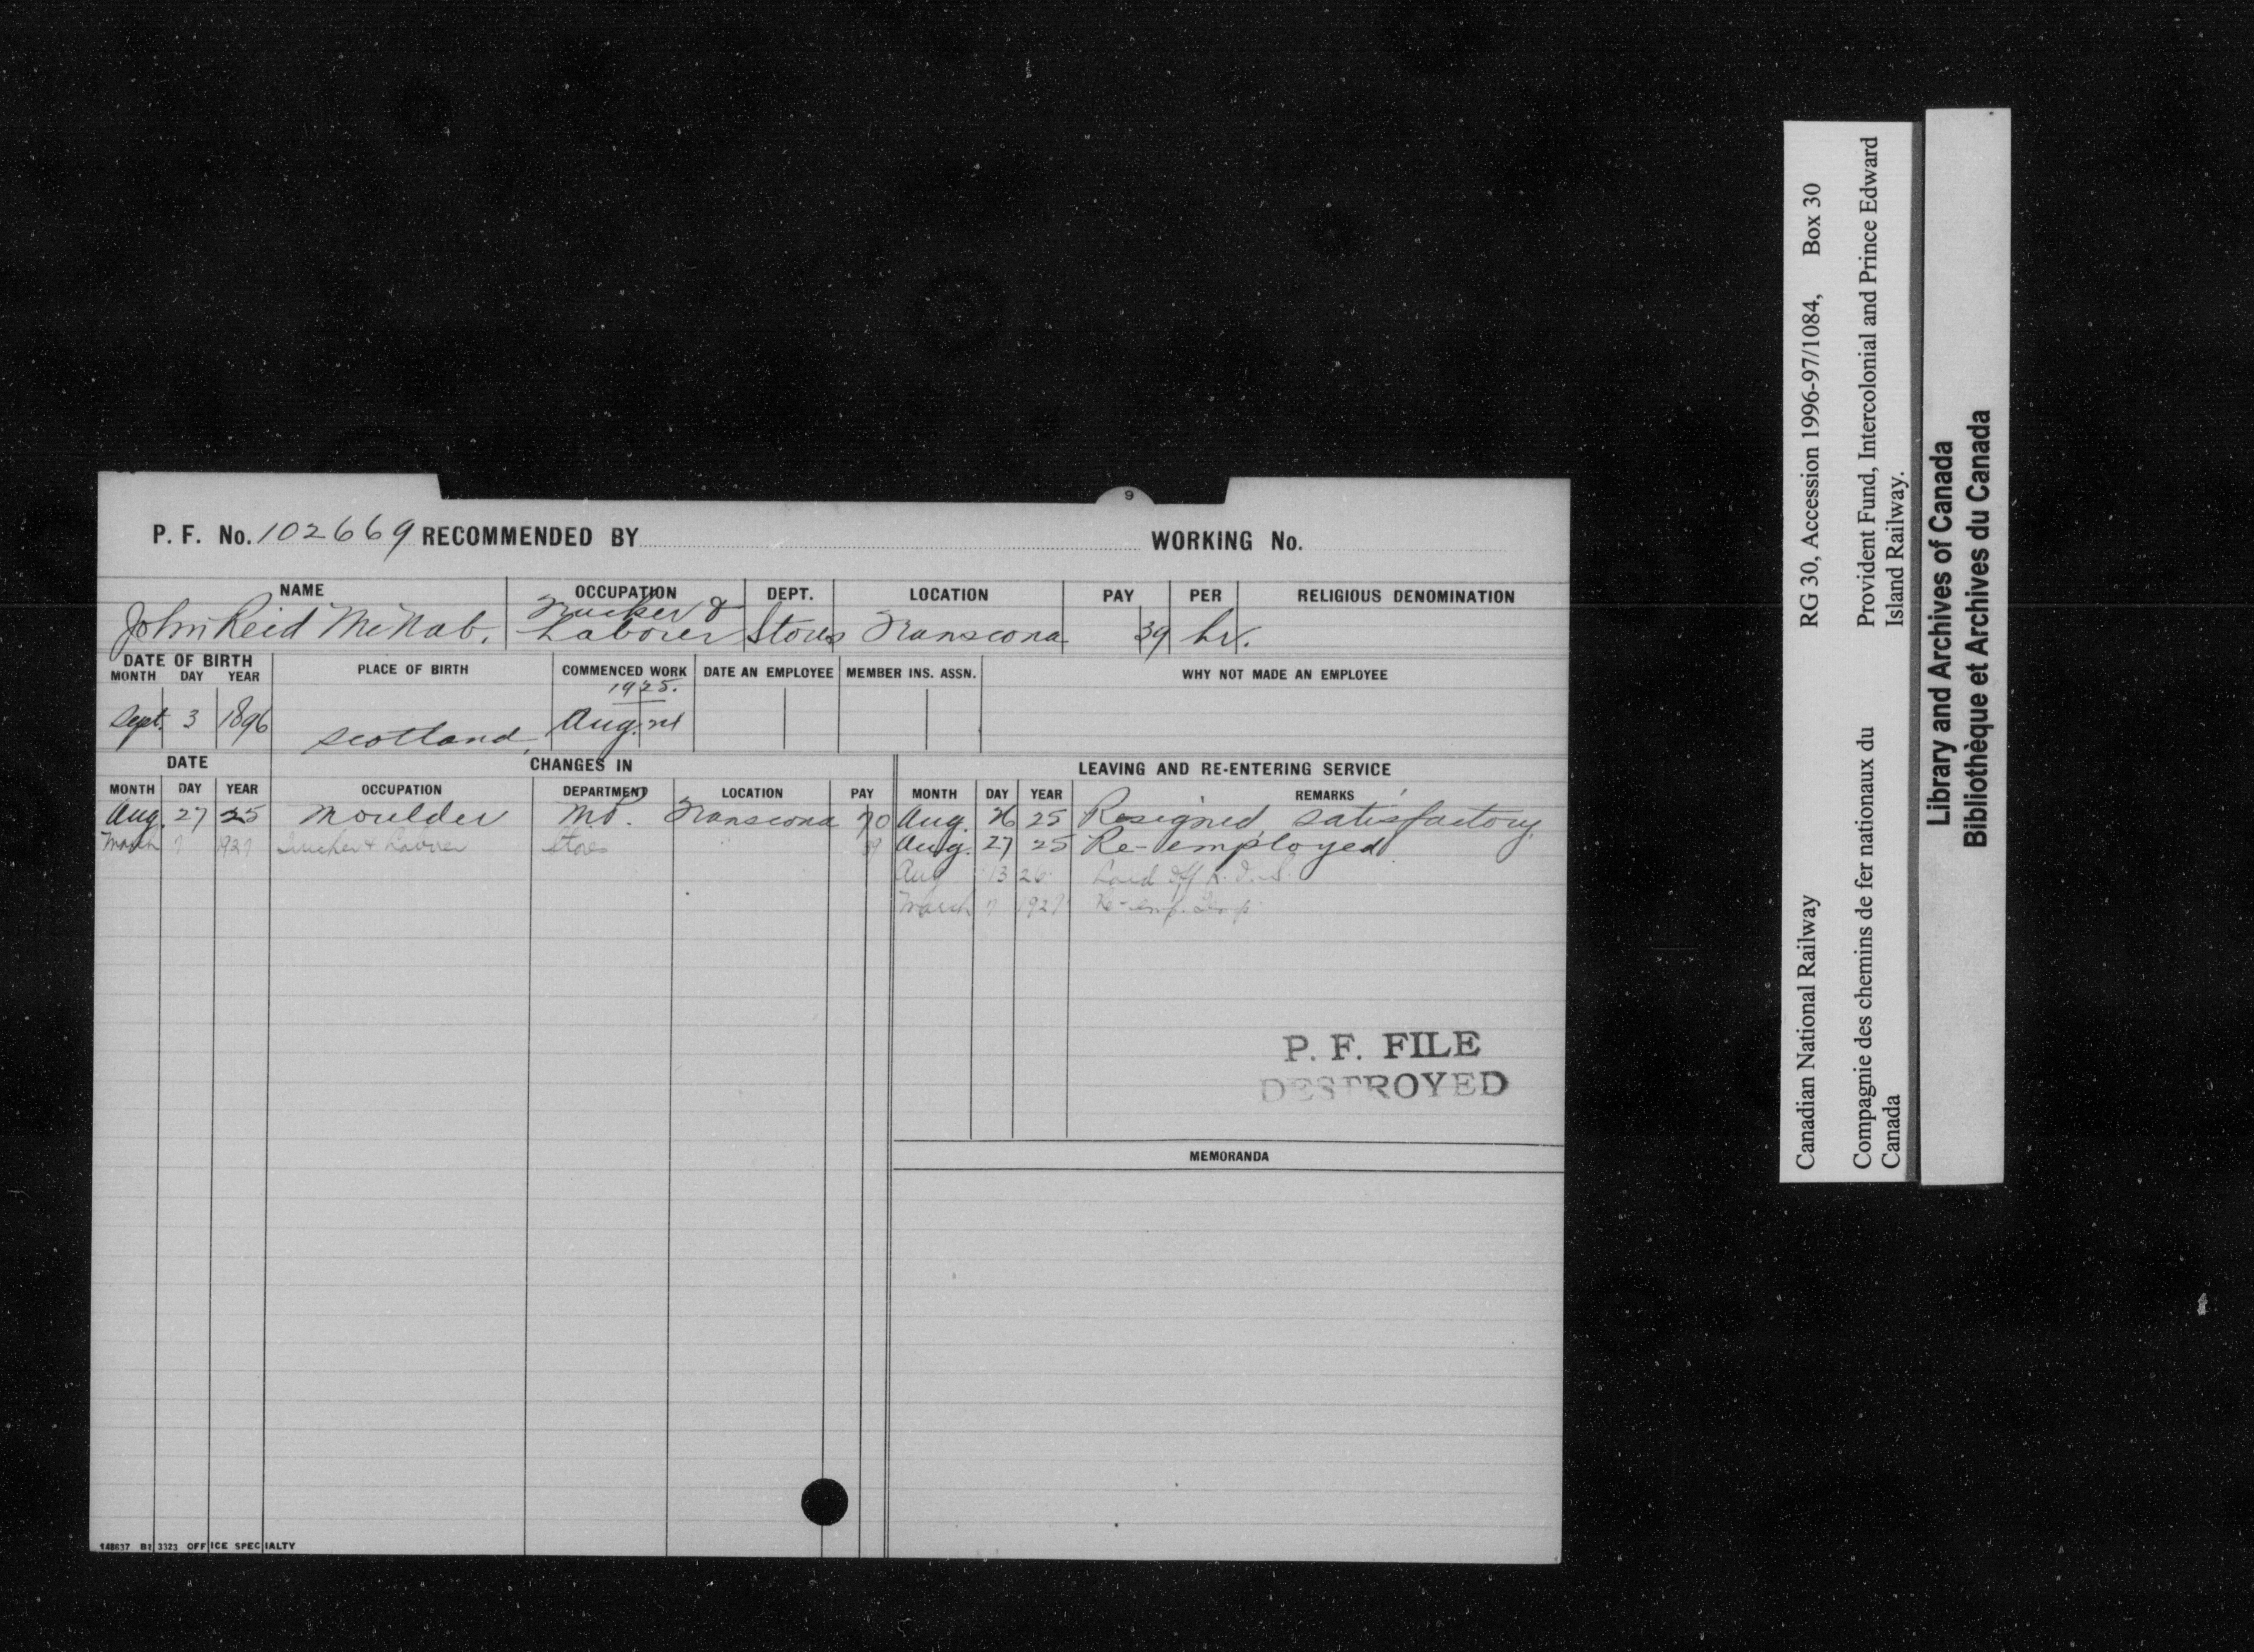 9
P. F. No. 102669 RECOMMENDED BY WORKING No.
NAME OCCUPATION DEPT. LOCATION PAY PER RELIGIOUS DENOMINATION
John Reid McNab. Trucker & Laborer Stores Transcona 39 hr.
DATE OF BIRTH PLACE OF BIRTH COMMENCED WORK DATE AN EMPLOYEE MEMBER INS. ASSN. WHY NOT MADE AN EMPLOYEE
MONTH DAY YEAR
1925.
Sept. 3 1896 Scotland, Aug. 24
DATE CHANGES IN LEAVING AND RE-ENTERING SERVICE
MONTH DAY YEAR OCCUPATION DEPARTMENT LOCATION PAY MONTH DAY YEAR REMARKS
Aug. 27 25 Moulder M.P. Transcona 70 Aug. 26 25 Resigned, satisfactory
March 7 1927 Trucker & Laborer Stores " 39 Aug. 27 25 Re-employed
Aug 13 26 Laid Off
March 7 1927 Re-emp. Temp.
P. F. FILE
DESTROYED
MEMORANDA
148637 BI 3323 OFFICE SPECIALTY
Canadian National Railway RG 30, Accession 1996-97/1084, Box 30
Compagnie des chemins de fer nationaux du Provident Fund, Intercolonial and Prince Edward
Canada Island Railway.
Library and Archives of Canada
Bibliothèque et Archives du Canada